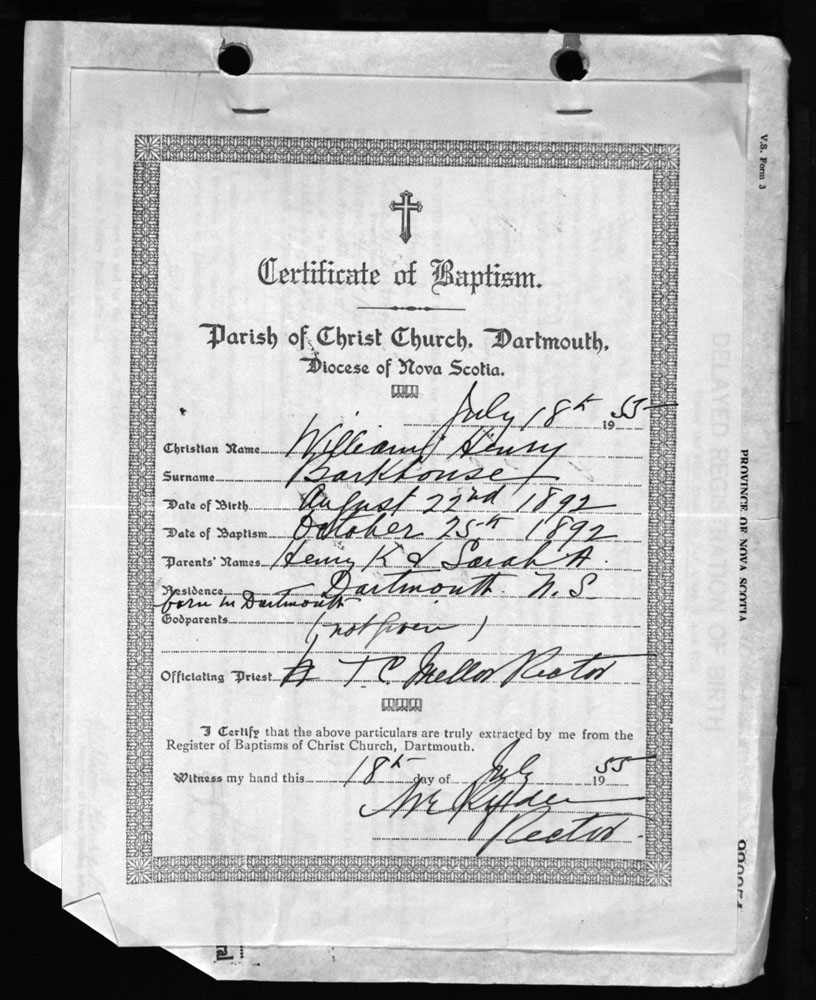 V.S. Form 3
Certificate of Baptism.
Parish of Christ Church, Dartmouth,
Diocese of Nova Scotia.
July 18th 1955
Christian Name William Henry
Surname Barkhouse
Date of Birth August 22nd 1892
Date of Baptism October 25th 1892
Parents' Names Henry K & Sarah A.
Residence Dartmouth. N.S.
born in Dartmouth
Godparents (not given)
Officiating Priest T C Mellor Rector
I Certify that the above particulars are truly extracted by me from the
Register of Baptisms of Christ Church, Dartmouth.
Witness my hand this 18th day of July 1955
Rector
PROVINCE OF NOVA SCOTIA
DELAYED REGISTRATION OF BIRTH